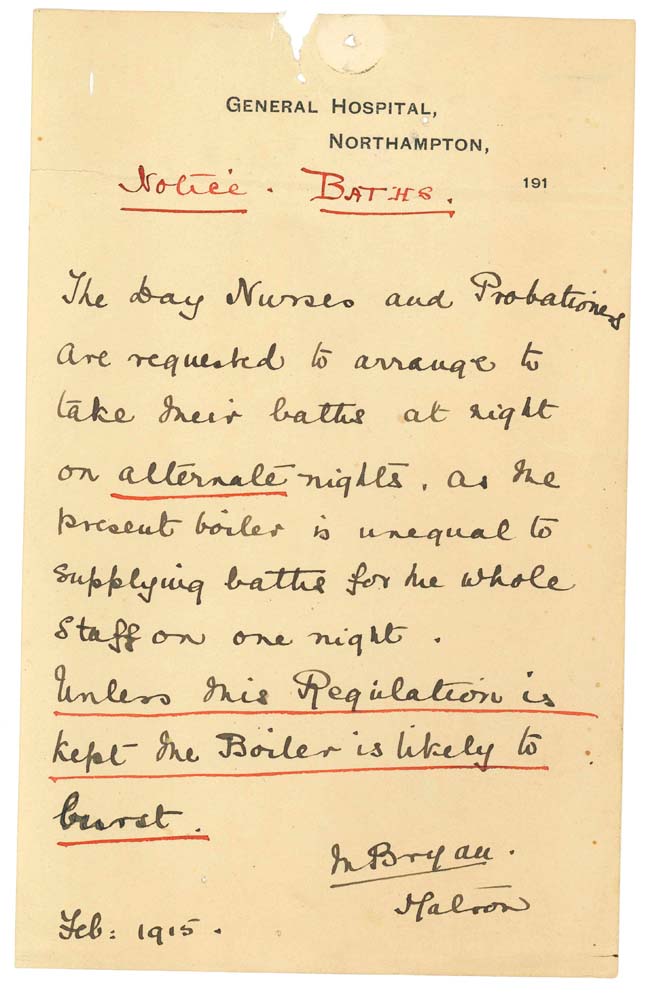 GENERAL HOSPITAL,
NORTHAMPTON,
191
Notice. BATHS.
The Day Nurses and Probationers
are requested to arrange to
take their baths at night
on alternate nights. as the
present boiler is unequal to
supplying baths for the whole
Staff on one night.
Unless this Regulation is
kept the Boiler is likely to
burst.
M Bryan.
Matron
Feb: 1915.